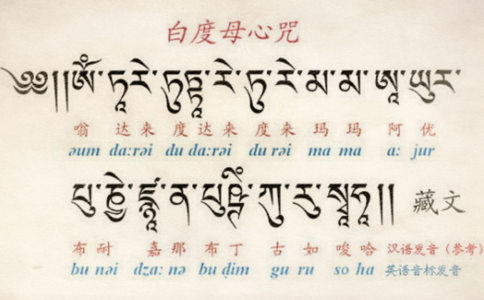 白度母心咒
༄༅།།ཨོཾ་ཏཱ་རེ་ཏུཏྟཱ་རེ་ཏུ་རེ་མ་མ་ཨཱ་ཡུར་
嗡 达来 度达来 度来 玛玛 阿 优
əum da:rəi du da:rəi du rəi ma ma a: jur
པུ་ཎྱེ་ཛྙཱ་ན་པུཥྚིཾ་ཀུ་རུ་སྭཱཧཱ།། 藏文
布耐 嘉那 布丁 古如 唆哈 汉语发音（参考）
bu nəi dʒa: nə bu ḍim gu ru so ha 英语音标发音